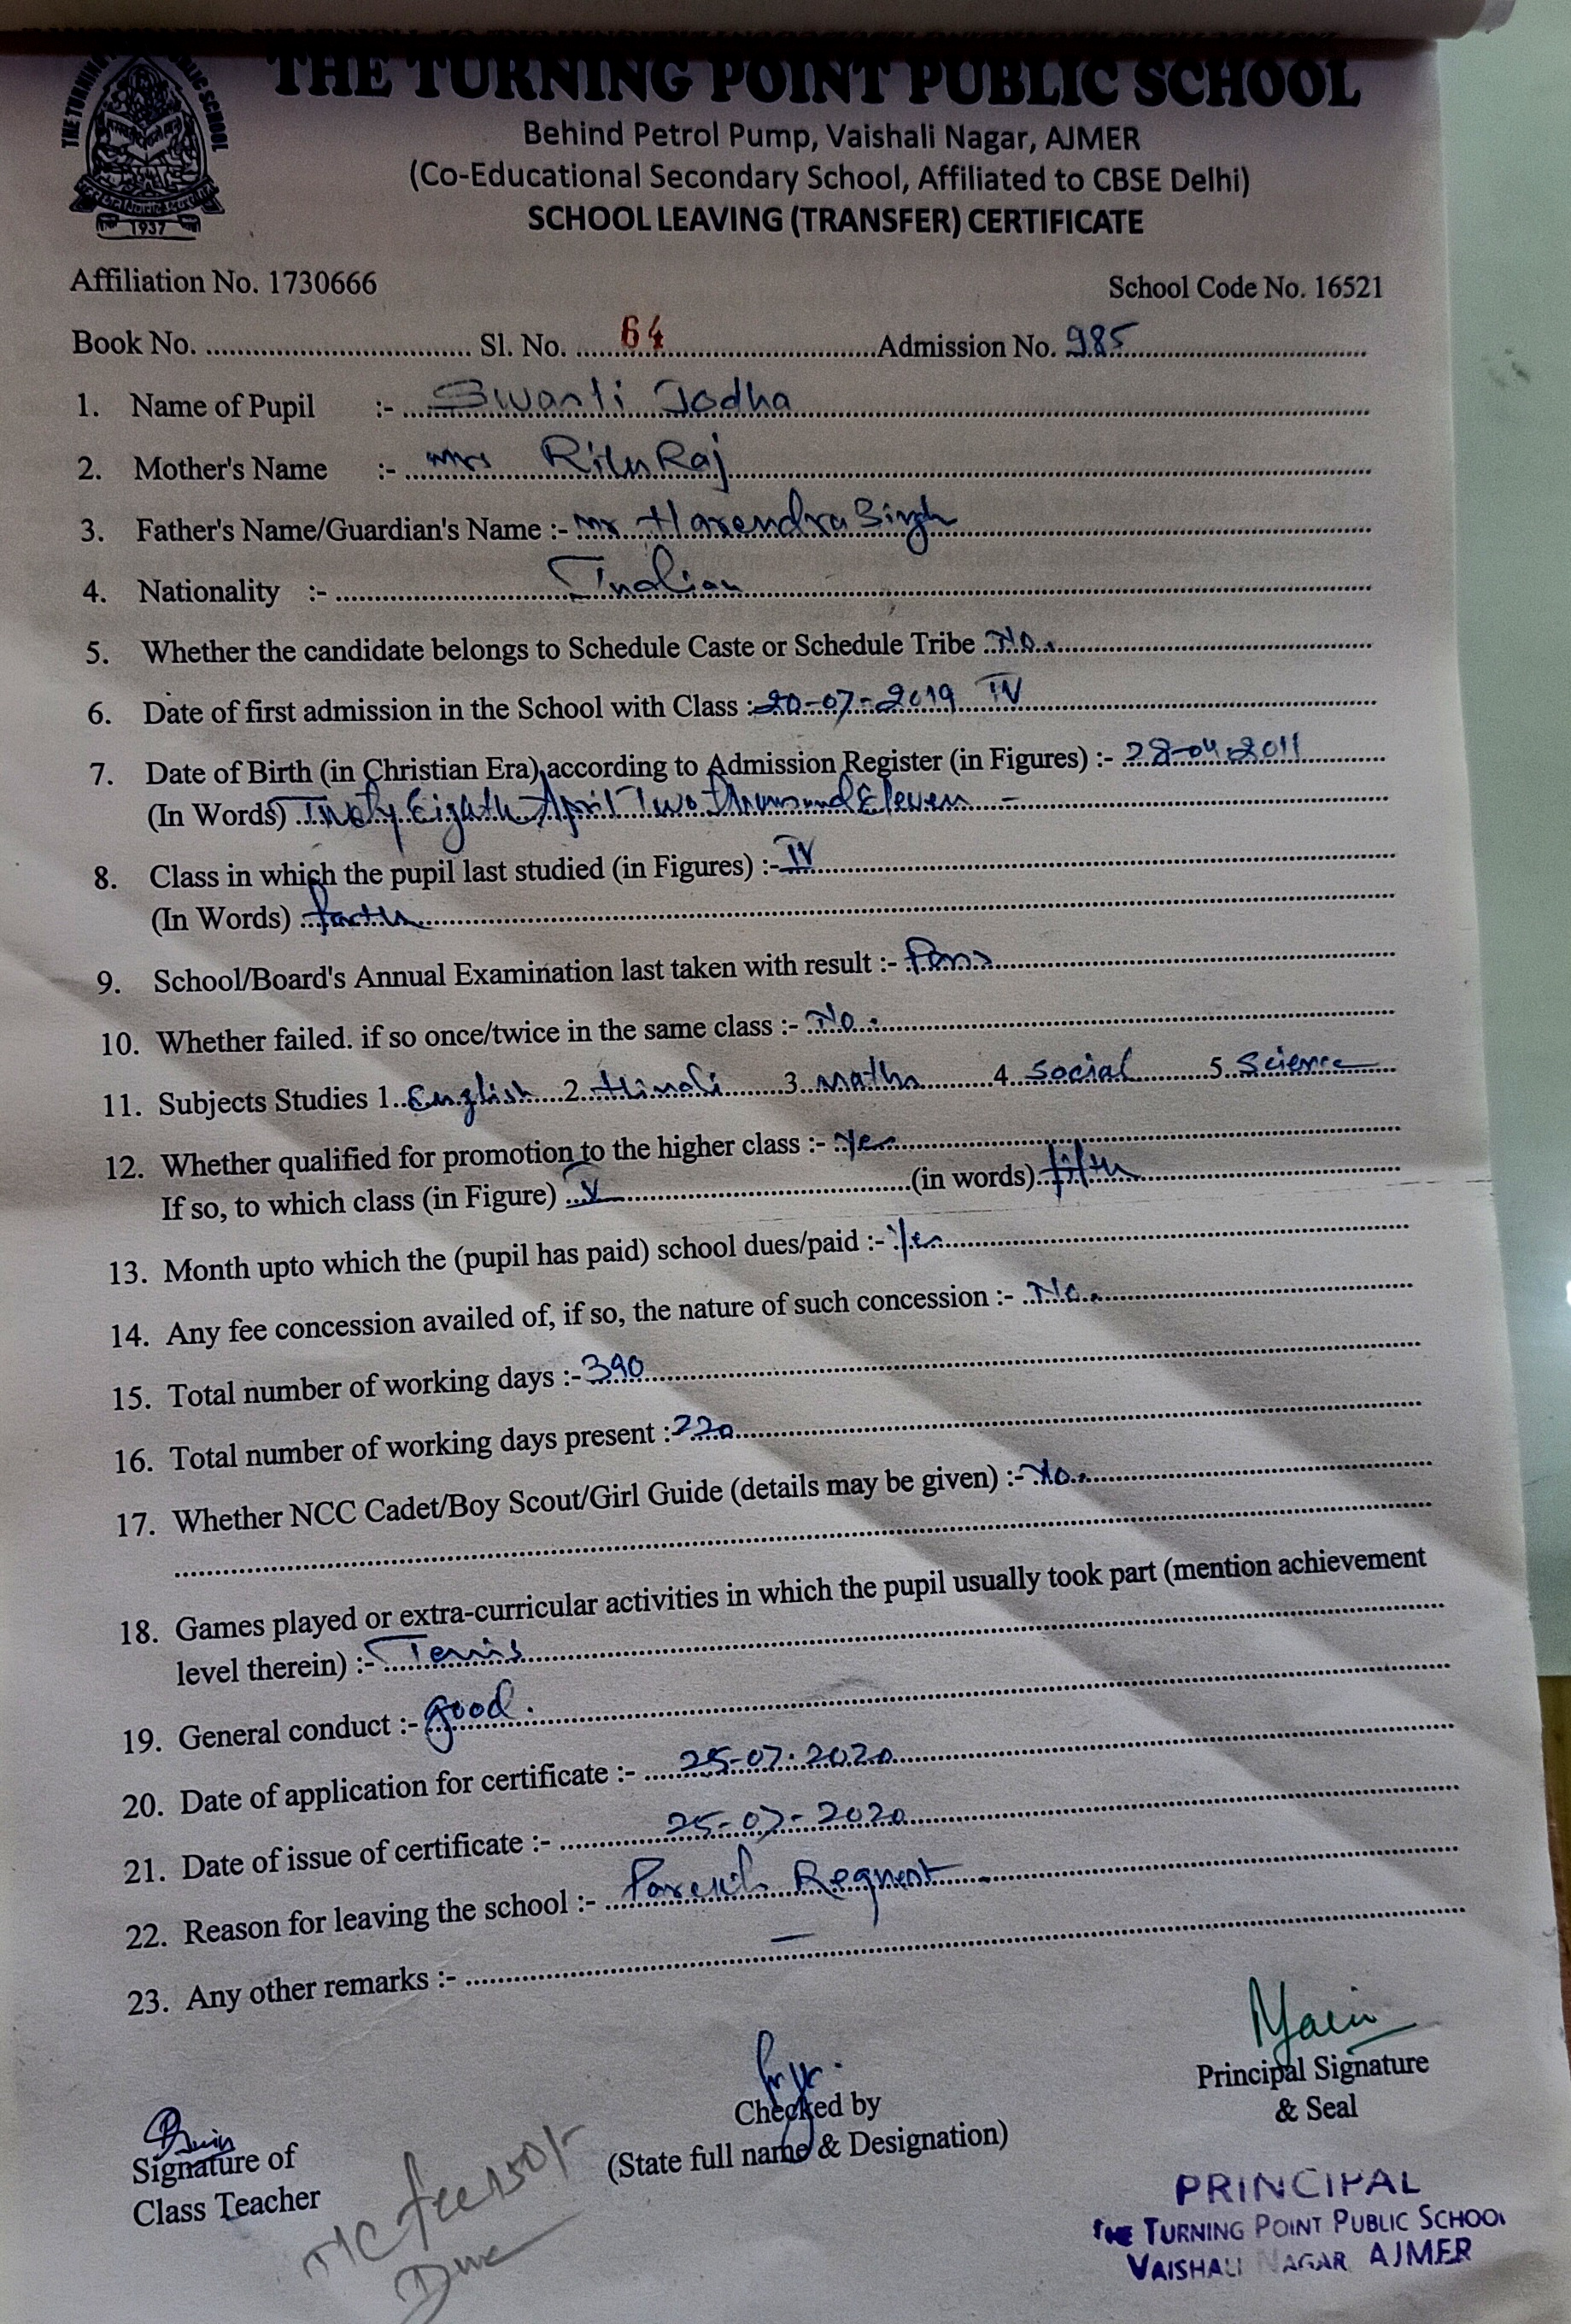 THE TURNING POINT PUBLIC SCHOOL
Behind Petrol Pump, Vaishali Nagar, AJMER
(Co-Educational Secondary School, Affiliated to CBSE Delhi)
SCHOOL LEAVING (TRANSFER) CERTIFICATE
1937
Affiliation No. 1730666 School Code No. 16521
Book No. Sl. No. 64 Admission No. 985
1. Name of Pupil :- Swasti Jodha
2. Mother's Name :- Mrs Ritu Raj
3. Father's Name/Guardian's Name :- Mr. Harendra Singh
4. Nationality :- Indian
5. Whether the candidate belongs to Schedule Caste or Schedule Tribe No.
6. Date of first admission in the School with Class :- 20-07-2019 IV
7. Date of Birth (in Christian Era) according to Admission Register (in Figures) :- 28-04-2011
(In Words) Twety Eighth April Two thousand Eleven -
8. Class in which the pupil last studied (in Figures) :- IV
(In Words) forth
9. School/Board's Annual Examination last taken with result :- Pass
10. Whether failed. if so once/twice in the same class :- No.
11. Subjects Studies 1. English 2. Hindi 3. Maths 4. Social 5. Science
12. Whether qualified for promotion to the higher class :- Yes
If so, to which class (in Figure) V (in words) fifth
13. Month upto which the (pupil has paid) school dues/paid :- Yes
14. Any fee concession availed of, if so, the nature of such concession :- No.
15. Total number of working days :- 390
16. Total number of working days present :- 220
17. Whether NCC Cadet/Boy Scout/Girl Guide (details may be given) :- No.
18. Games played or extra-curricular activities in which the pupil usually took part (mention achievement
level therein) :- Tennis
19. General conduct :- good.
20. Date of application for certificate :- 25-07-2020
21. Date of issue of certificate :- 25-07-2020
22. Reason for leaving the school :- Parents Request -
23. Any other remarks :- —
Principal Signature
& Seal
Checked by
(State full name & Designation)
Signature of
Class Teacher
T/C fee 150/-
Due
PRINCIPAL
THE TURNING POINT PUBLIC SCHOOL
VAISHALI NAGAR AJMER